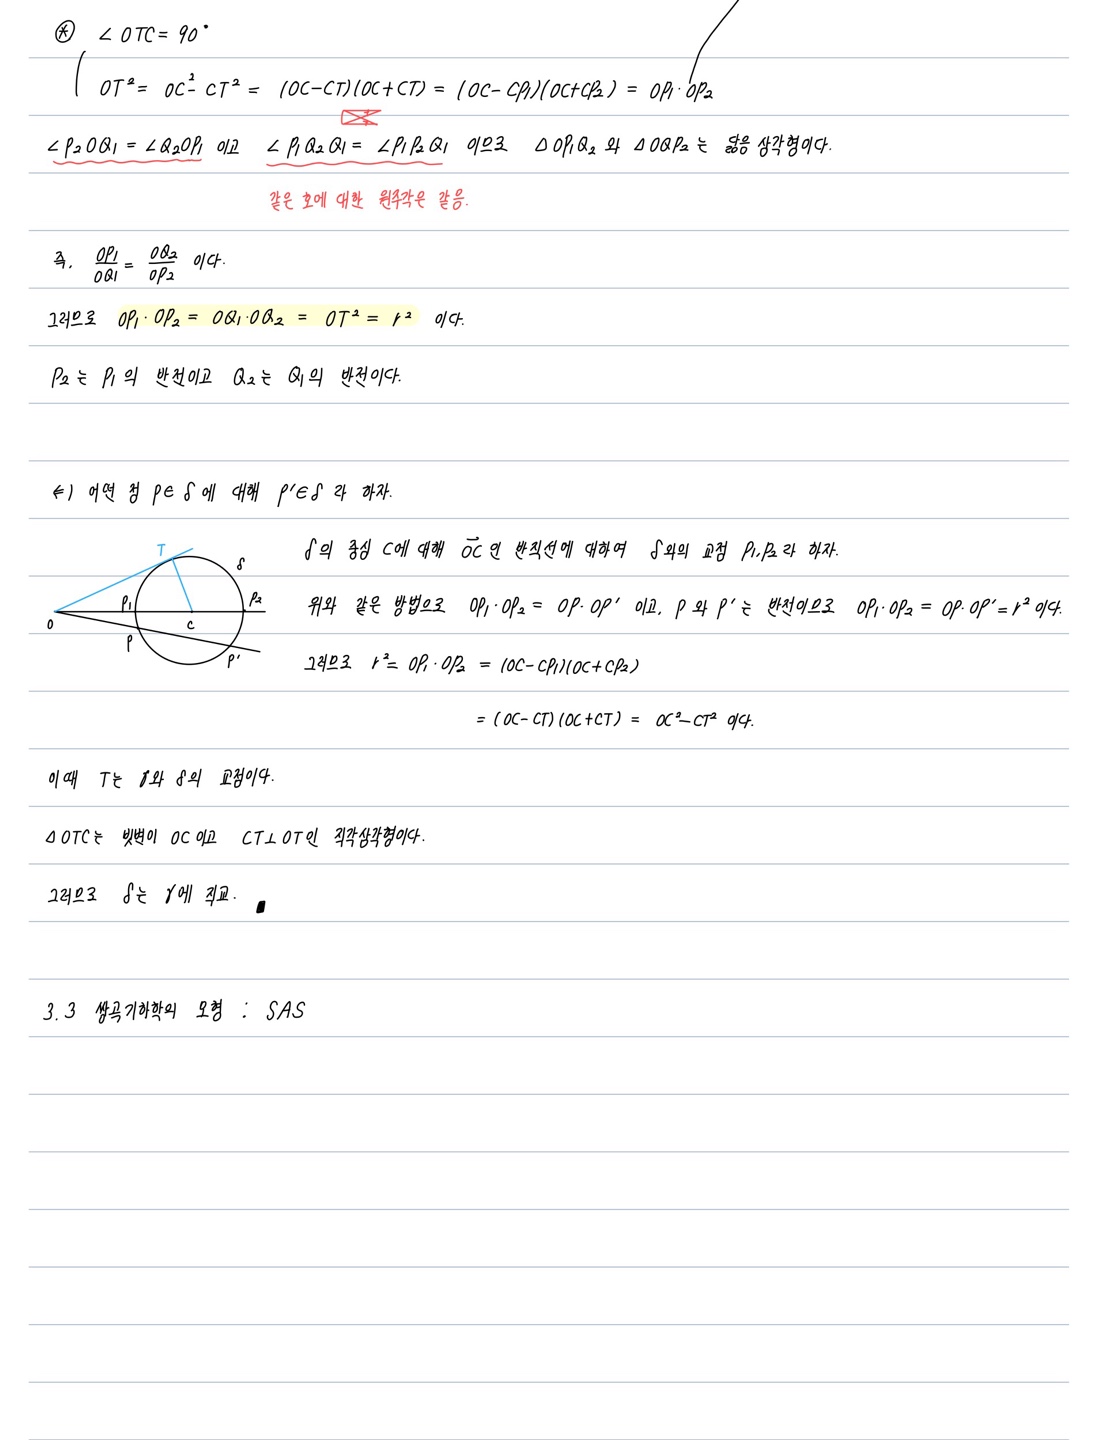 ⊛ ∠OTC = 90°
OT² = OC² - CT² = (OC-CT)(OC+CT) = (OC-CP₁)(OC+CP₂) = OP₁·OP₂
∠P₂OQ₁ = ∠Q₂OP₁ 이고 ∠P₁Q₂Q₁ = ∠P₁P₂Q₁ 이므로 △OP₁Q₂ 와 △OQP₂는 닮음 삼각형이다.
같은 호에 대한 원주각은 같음.
즉, OP₁/OQ₁ = OQ₂/OP₂ 이다.
그러므로 OP₁·OP₂ = OQ₁·OQ₂ = OT² = r² 이다.
P₂는 P₁의 반전이고 Q₂는 Q₁의 반전이다.
⇐) 어떤 점 P∈δ에 대해 P'∈δ라 하자.
δ의 중심 C에 대해 OC→인 반직선에 대하여 δ와의 교점 P₁,P₂라 하자.
T
δ
P₁
P₂
O
C
P
P'
위와 같은 방법으로 OP₁·OP₂ = OP·OP' 이고, P와 P'는 반전이므로 OP₁·OP₂ = OP·OP' = r² 이다.
그러므로 r² = OP₁·OP₂ = (OC-CP₁)(OC+CP₂)
= (OC-CT)(OC+CT) = OC²-CT² 이다.
이때 T는 γ와 δ의 교점이다.
△OTC는 빗변이 OC이고 CT⊥OT인 직각삼각형이다.
그러므로 δ는 γ에 직교. ■
3.3 쌍곡기하학의 모형 : SAS